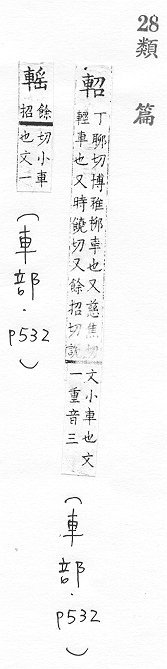 28
類篇
軺
丁聊切博雅軺車也又慈焦切
輕車也又時饒切又餘招切說
文小車也文
一重音三
(車部.p532)
餘切小車
招也文一
(車部.p532)